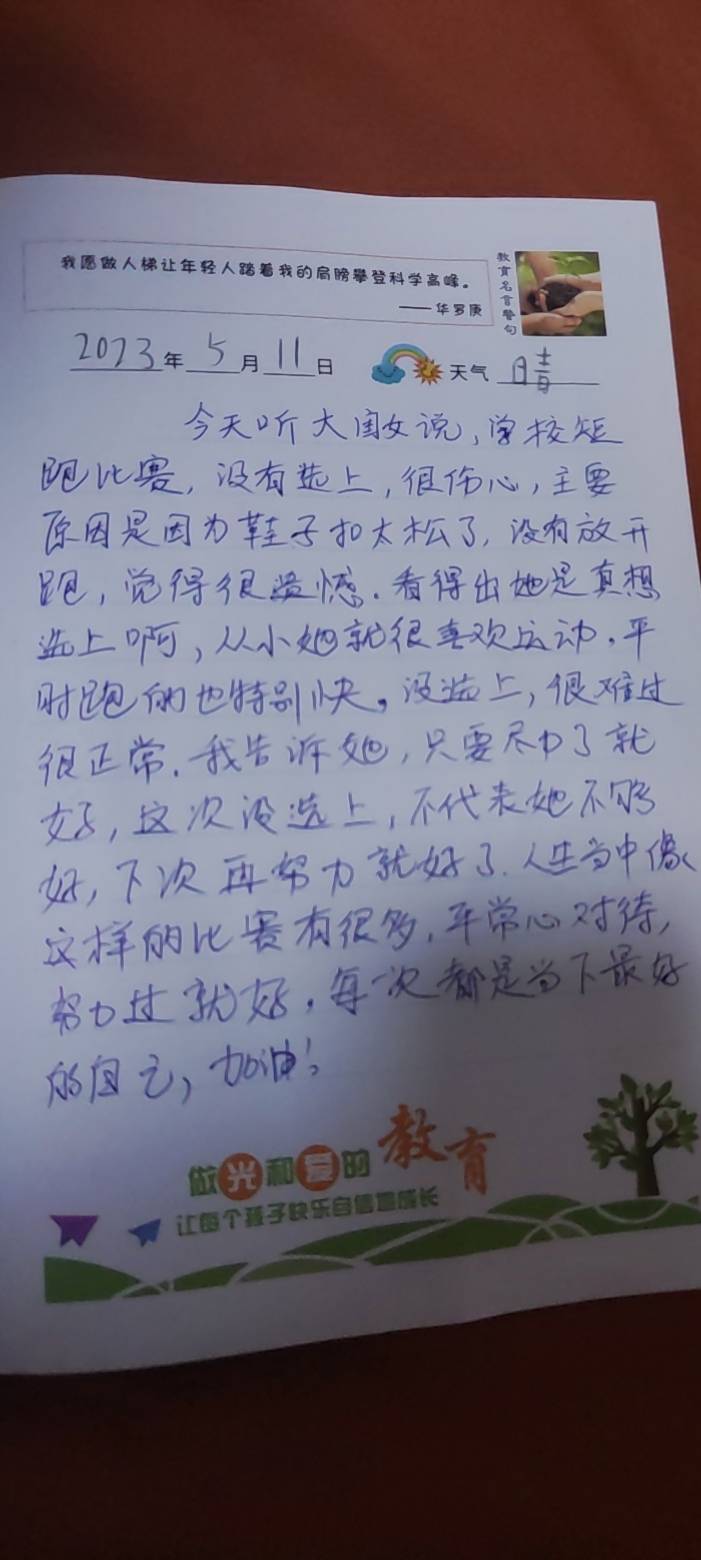 我愿做人梯让年轻人踏着我的肩膀攀登科学高峰。
——华罗庚
教育名言警句
2023年5月11日 天气 晴
今天听大闺女说,学校短
跑比赛,没有选上,很伤心,主要
原因是因为鞋子扣太松了,没有放开
跑,觉得很遗憾.看得出她是真想
选上啊,从小她就很喜欢运动.平
时跑的也特别快。没选上,很难过
很正常.我告诉她,只要尽力了就
好,这次没选上,不代表她不够
好,下次再努力就好了.人生当中像
这样的比赛有很多,平常心对待,
努力过就好,每一次都是当下最好
的自己,加油!
做光和爱的教育
让每个孩子快乐自信地成长